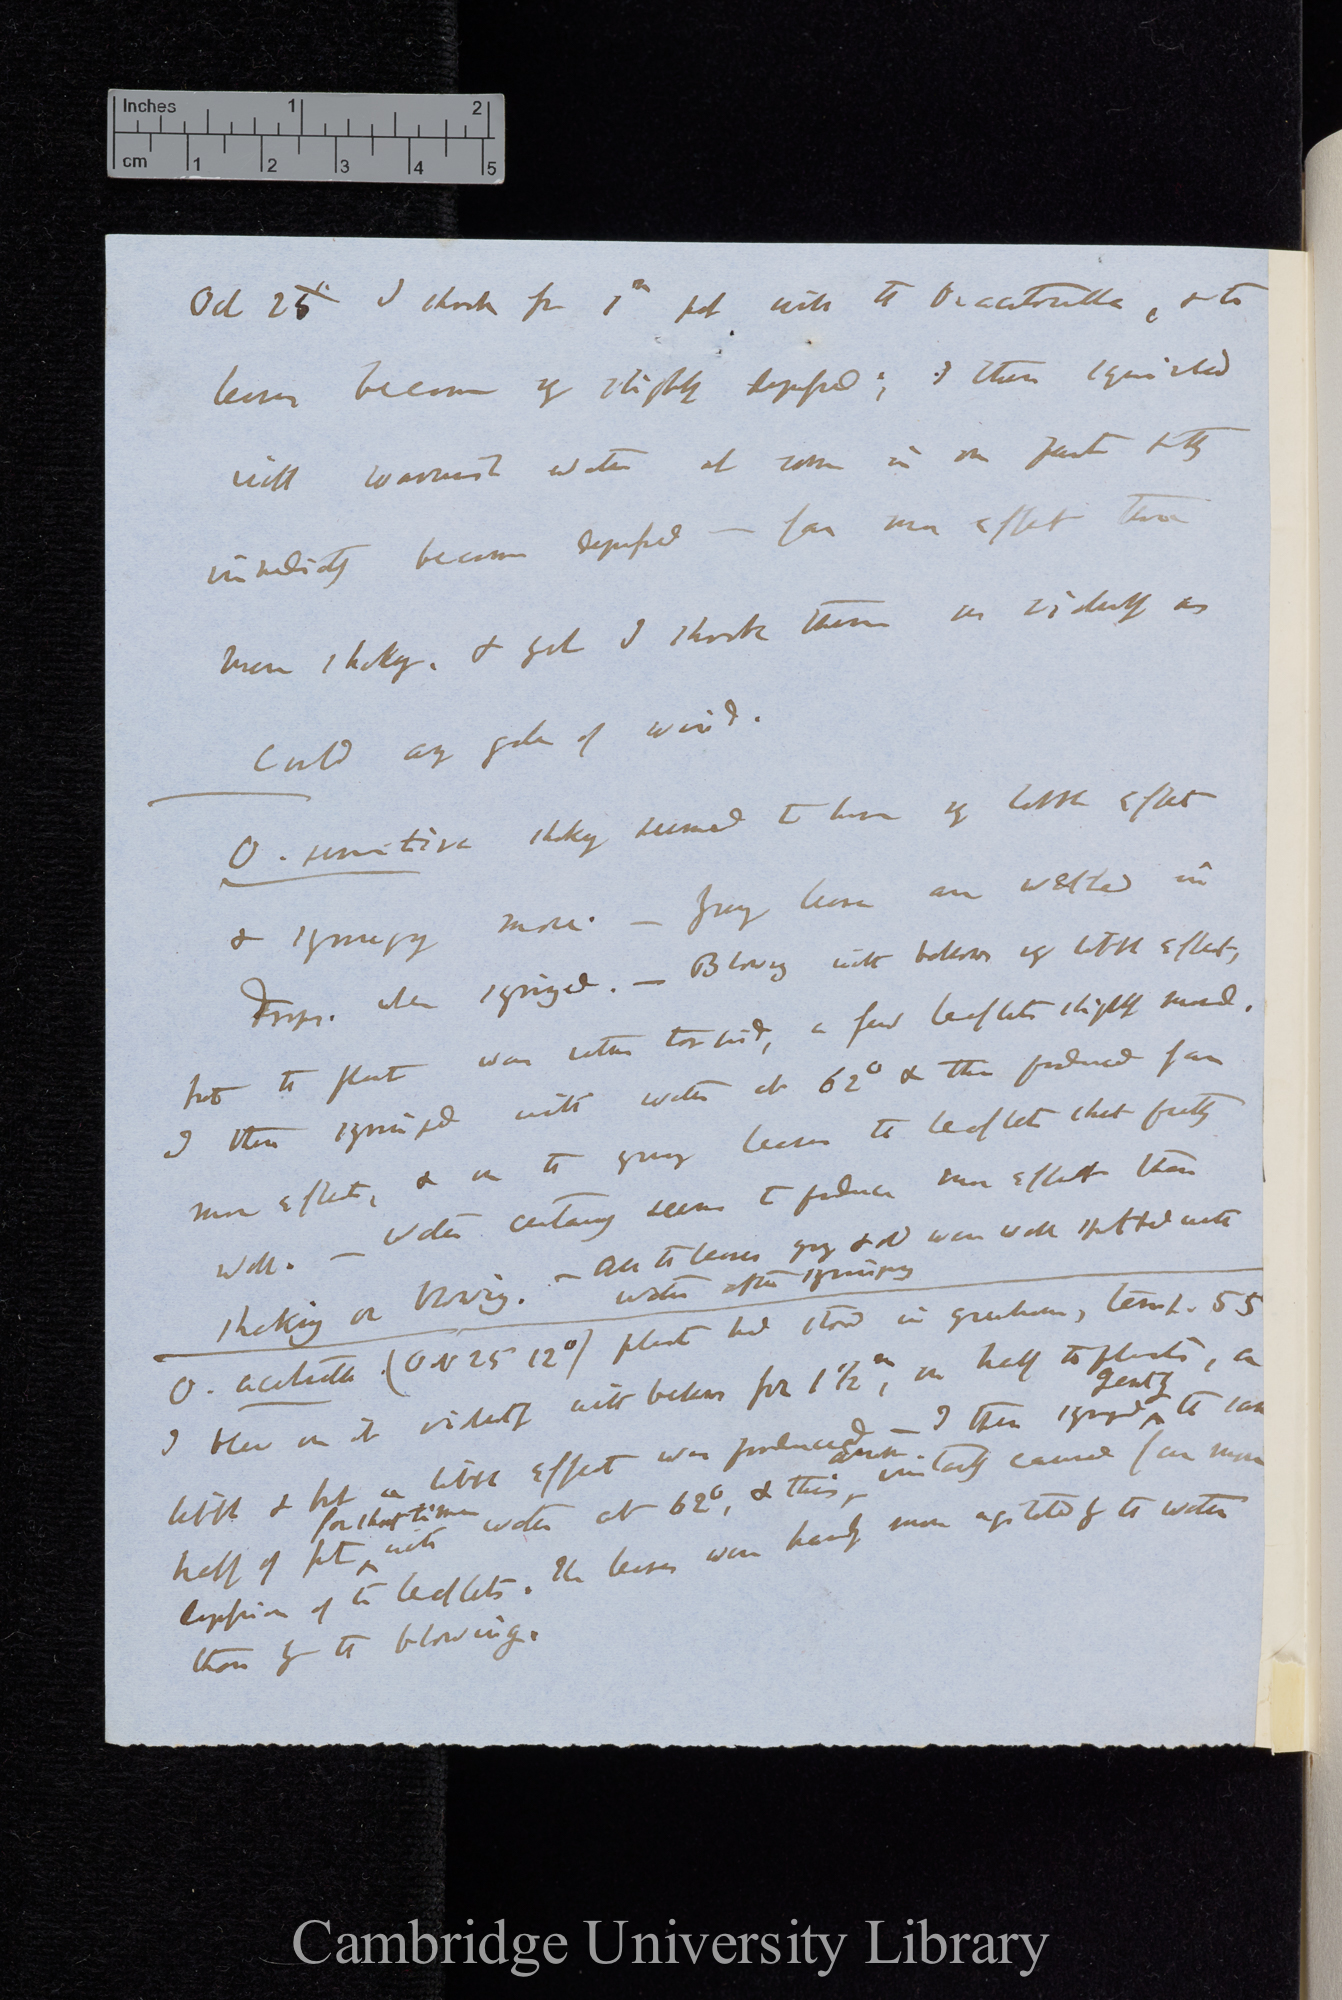 Inches 1 2
cm 1 2 3 4 5
Oct 25 I shook for 1m pot with the O. acetosella, & the
leaves became vy slightly depressed; I then squirted
with warmest water at room in one part & they
immediately became depressed — far more effect than
mere shaking. & yet I shook them as violently as
could any gale of wind.
O. sensitiva shaking seemed to have vy little effect
& syringing more. — Young leaves are wetted in
drops. when syringed. — Blowing with bellows vy little effect,
but the plant was rather torpid, a few leaflets slightly moved.
I then syringed with water at 62° & this produced far
more effect, & on the young leaves the leaflets shut pretty
well. — Water certainly seems to produce more effect than
shaking or blowing. — All the leaves young & old were well spotted with
water after syringing
O. acetosella (Oct 25 12°) plant had stood in greenhouse, temp. 55
I blew on it violently with bellows for 1 1/2m, on half the plants,
little & but a little effect was produced. I then syringed gently the
half of pot for short time with water at 62°, & this caused far more
depression of the leaflets. The leaves were hardly more agitated by the water
than by the blowing.
Cambridge University Library